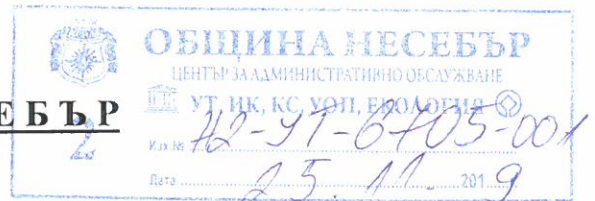 ОБЩИНА НЕСЕБЪР
ЦЕНТЪР ЗА АДМИНИСТРАТИВНО ОБСЛУЖВАНЕ
УТ, ИК, КС, УОП, ЕКОЛОГИЯ
ЕБЪР
2
К.рх.№ Н2-УТ-6705-001
Дата 25.11. 2019